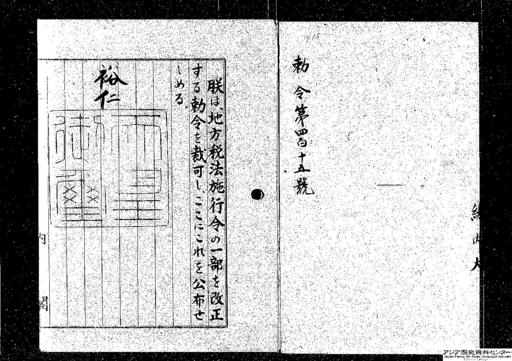 勅令第四百十五號
朕は、地方税法施行令の一部を改正
する勅令を裁可し、ここにこれを公布せ
しめる。
裕仁
天皇御璽
内閣
アジア歴史資料センター